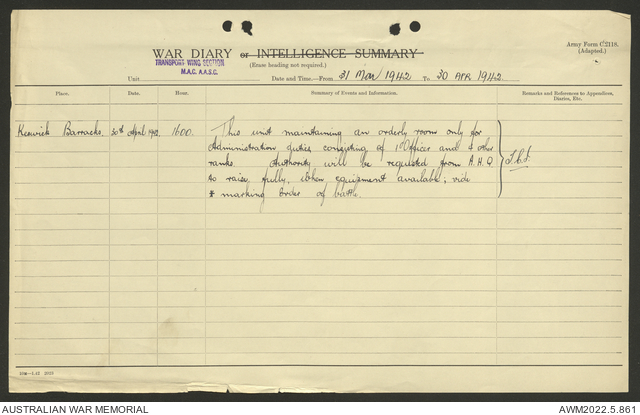 Army Form C.2118.
(Adapted.)
WAR DIARY or INTELLIGENCE SUMMARY
(Erase heading not required.)
TRANSPORT WING SECTION
M.A.C. A.A.S.C.
Unit Date and Time—From 31 Mar 1942 To 30 APR 1942.
Place. Date. Hour. Summary of Events and Information. Remarks and References to Appendices, Diaries, Etc.
Keswick Barracks. 30th April 1942. 1600. This unit maintaining an orderly room only for
Administration duties consisting of 1 Officer and 4 other
ranks. Authority will be requested from A.H.Q
to raise fully, when equipment available; vide
* marking Order of battle.
AUSTRALIAN WAR MEMORIAL
AWM2022.5.861